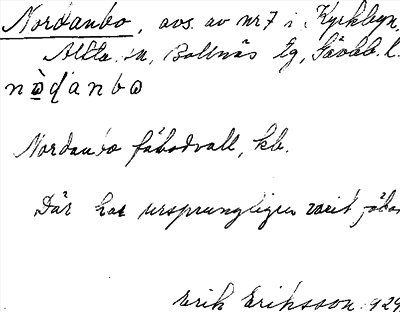 Nordanbo, avs. av nr 7 i Kyrkbyn,
Alfta sn, Bollnäs tg, Gävleb. l.
Nordanbo fäbodvall, kb.
Där har ursprungligen varit
Erik Eriksson 1929